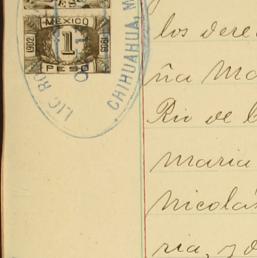 MEXICO
1902 1 1903
PESO
CHIHUAHUA, M
LIC. RO
los dere
ña Ma
Rio de
maria
Nicolás
ria, y d